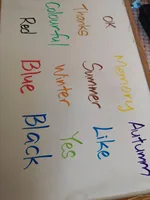 OK Memory Autumm
Thanks Summer Like
Colourful Winter Yes
Red Blue Black